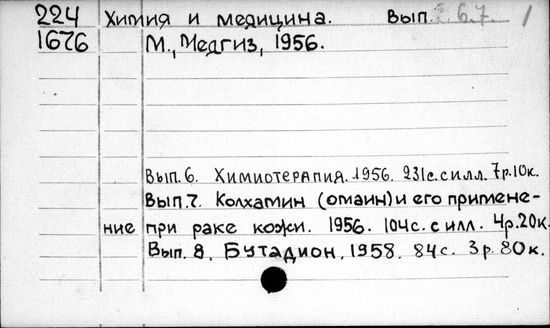 224 Химия и медицина. Вып. 6.7. 1
1676 М., Медгиз, 1956.
Вып. 6. Химиотерапия. 1956. 231с. с илл. 7р.10к.
Вып. 7. Колхамин (омаин) и его примене-
ние при раке кожи. 1956. 104с. с илл. 4р.20к.
Вып. 8. Бутадион. 1958. 84с. 3р. 80к.